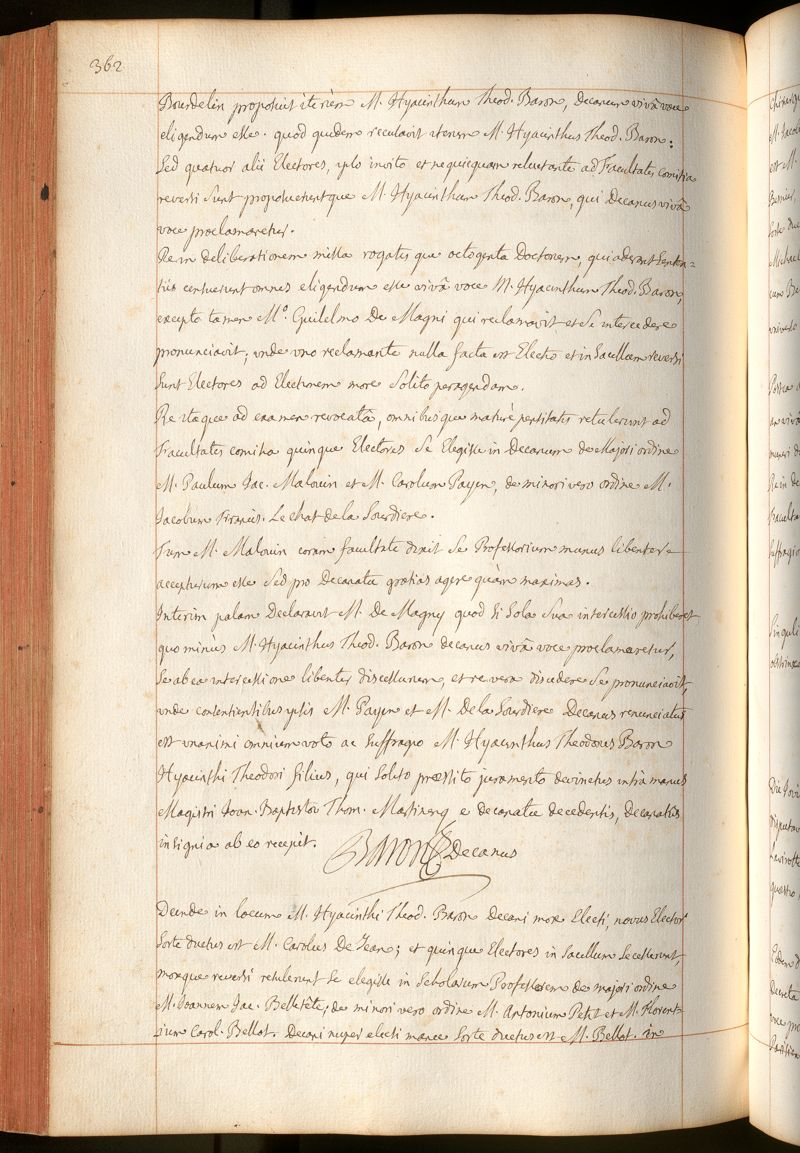 362
Bourdelin proposuit iterùm M. Hyacinthum Theod. Baron, Decanum vivâ voce
eligendum esse. quod quidem recusavit iterum M. Hyacinthus Theod. Baron:
Sed quatuor alii Electores, ipso invito et nequicquam reluctante ad Facultatis Comitia
reversi sunt proposueruntque M. Hyacinthum Theod. Baron, qui Decanus vivâ
voce proclamaretur.
Re in deliberationem missa rogatisque octogenta Doctorum, qui aderant Senten=
tiis censuerunt omnes eligendum esse vivâ voce M. Hyacinthum Theod. Baron,
excepto tamen M.º Guilelmo De Magni qui reclamavit et se intercedere
pronunciavit; unde uno reclamante nulla facta est Electio et in Sacellum reversi
sunt Electores ad Electionem more solito peragendam.
Re itaque ad examen revocatâ, omnibusque maturè pensitatis retulerunt ad
Facultatis comitia quinque Electores se Elegisse in Decanum de Majori ordine
M. Paulum Jac. Malouin et M. Carolum Payen, de minori vero ordine M.
Jacobum Francis. Le chat de la Sourdiere.
Tum M. Malouin coram facultate dixit se Professorium munus libenter
accepturum esse sed pro Decanatu gratias agere quàm maximas.
Interim palam Declaravit M. De Magny quod si sola sua intercessio prohiberet
quominùs M. Hyacinthus Theod. Baron decanus vivâ voce proclamaretur,
se ab ea intercessione libenter discessurum, et re vera discedere se pronunciavit,
unde consentientibus ipsis M. Payen et M. De la Sourdiere Decanus renunciatus
est unanimi omnium voto ac suffragio M. Hyacinthus Theodorus Baron
Hyacinthi Theodori filius, qui solito praestito juramento devinctus intrà manus
Magistri Joan. Baptistae Thom. Martinenq e decanatu decedentis, decanatûs
insignia ab eo recepit.
BARON Decanus
Deinde in locum M. Hyacinthi Theod. Baron Decani mox Electi, novus Elector
sorte ductus est M. Carolus De Jean; et quinque Electores in sacellum secesserunt,
moxque reversi retulerunt se elegisse in Scholarum Professorem de majori ordine
M. Joannem Jac. Belletête; de minori vero ordine M. Antonium Petit et M. Florent=
ium Carol. Bellot. Decani nuper electi manu sorte ductus est M. Bellot. in